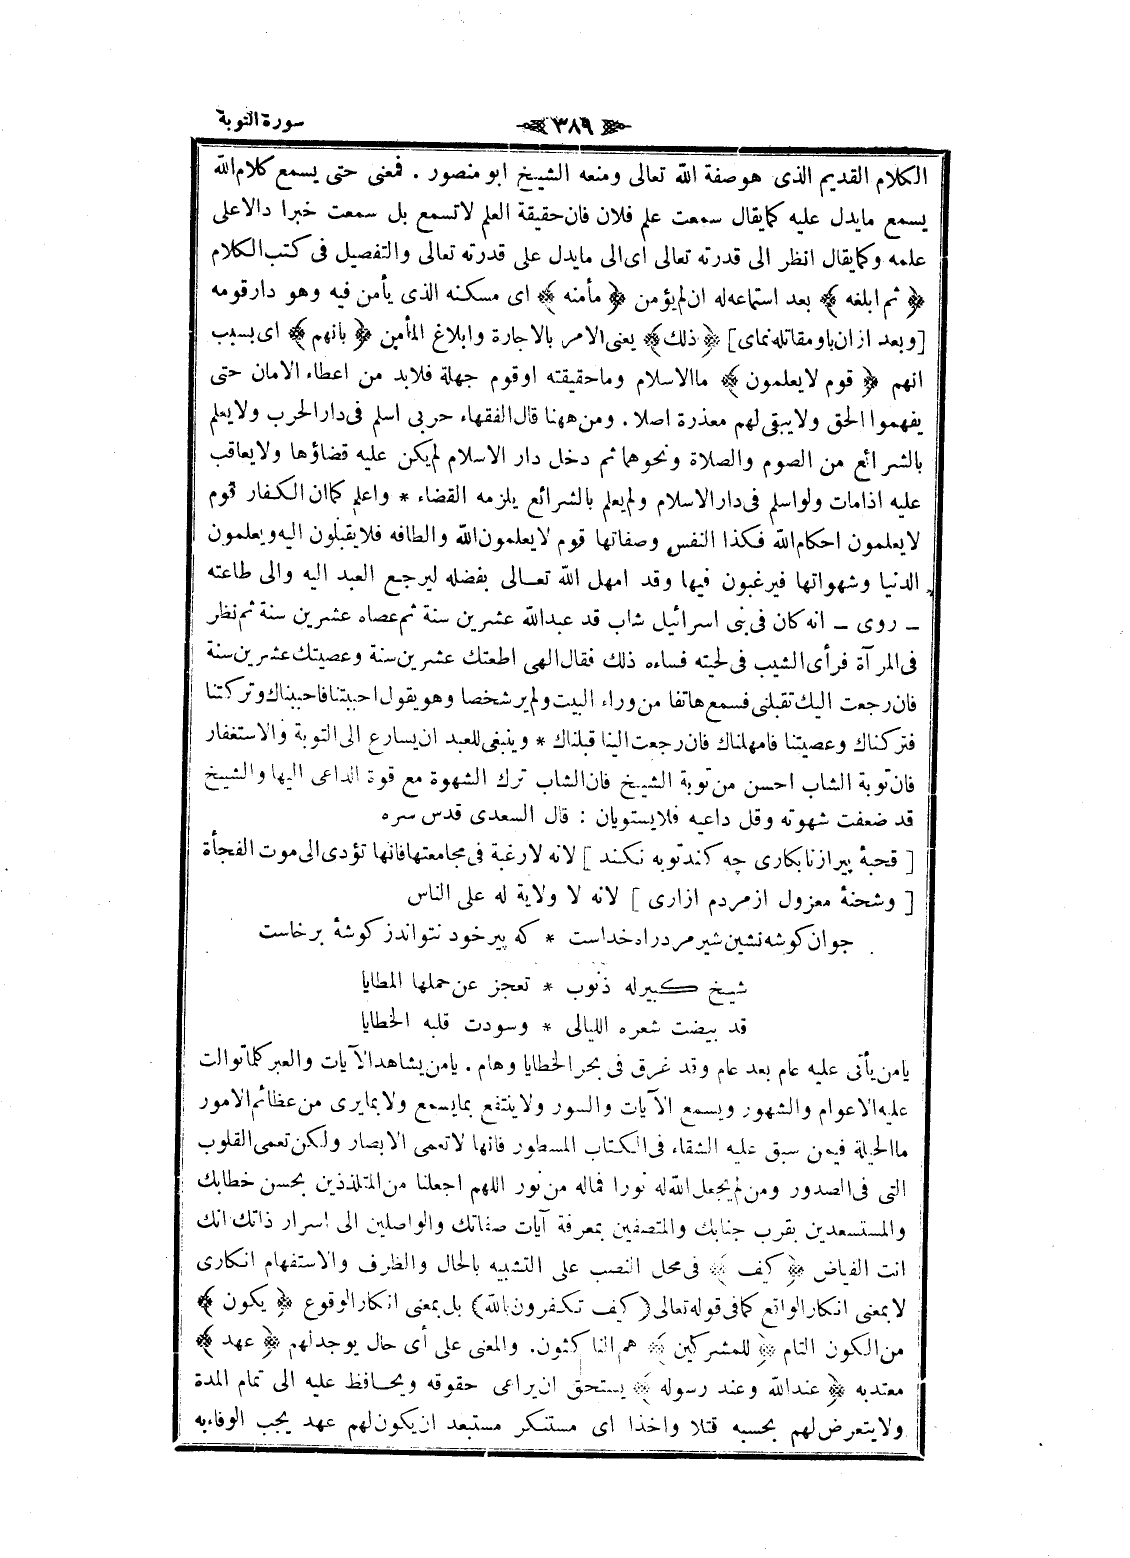 سورة التوبة
٣٨٩
الكلام القديم الذى هو صفة الله تعالى ومنعه الشيخ ابو منصور . فمعنى حتى يسمع كلام الله
يسمع مايدل عليه كمايقال سمعت علم فلان فان حقيقة العلم لاتسمع بل سمعت خبرا دالا على
علمه وكمايقال انظر الى قدرته تعالى اى الى مايدل على قدرته تعالى والتفصيل فى كتب الكلام
﴿ ثم ابلغه ﴾ بعد استماعه له ان لم يؤمن ﴿ مأمنه ﴾ اى مسكنه الذى يأمن فيه وهو دار قومه
[ وبعد ازان باو مقاتله نماى ] ﴿ ذلك ﴾ يعنى الامر بالاجارة وابلاغ المأمن ﴿ بانهم ﴾ اى بسبب
انهم ﴿ قوم لايعلمون ﴾ ماالاسلام وماحقيقته اوقوم جهلة فلابد من اعطاء الامان حتى
يفهموا الحق ولايبقى لهم معذرة اصلا . ومن ههنا قال الفقهاء حربى اسلم فى دار الحرب ولايعلم
بالشرائع من الصوم والصلاة ونحوهما ثم دخل دار الاسلام لم يكن عليه قضاؤها ولايعاقب
عليه اذامات ولواسلم فى دار الاسلام ولم يعلم بالشرائع يلزمه القضاء * واعلم كماان الكفار قوم
لايعلمون احكام الله فكذا النفس وصفاتها قوم لايعلمون الله والطافه فلايقبلون اليه ويعلمون
الدنيا وشهواتها فيرغبون فيها وقد امهل الله تعالى بفضله ليرجع العبد اليه والى طاعته
ـ روى ـ انه كان فى بنى اسرائيل شاب قد عبدالله عشرين سنة ثم عصاه عشرين سنة ثم نظر
فى المرآة فرأى الشيب فى لحيته فساءه ذلك فقال الهى اطعتك عشرين سنة وعصيتك عشرين سنة
فان رجعت اليك تقبلنى فسمع هاتفا من وراء البيت ولم ير شخصا وهو يقول احببتنا فاحببناك وتركتنا
فتركناك وعصيتنا فامهلناك فان رجعت الينا قبلناك * وينبغى للعبد ان يسارع الى التوبة والاستغفار
فان توبة الشاب احسن من توبة الشيخ فان الشاب ترك الشهوة مع قوة الداعى اليها والشيخ
قد ضعفت شهوته وقل داعيه فلايستويان : قال السعدى قدس سره
[ قحبهٔ پيراز نابكارى چه كند توبه نكند ] لانه لارغبة فى مجامعتها فانها تؤدى الى موت الفجأة
[ وشحنهٔ معزول از مردم ازارى ] لانه لا ولاية له على الناس
جوان كوشه نشين شير مرد راه خداست * كه پير خود نتواند ز كوشهٔ بر خاست
شيخ كبير له ذنوب * تعجز عن حملها المطايا
قد بيضت شعره الليالى * وسودت قلبه الخطايا
يامن يأتى عليه عام بعد عام وقد غرق فى بحر الخطايا وهام . يامن يشاهد الآيات والعبر كلماتوالت
عليه الاعوام والشهور ويسمع الآيات والسور ولاينتفع بمايسمع ولابمايرى من عظائم الامور
ماالحيلة فيمن سبق عليه الشقاء فى الكتاب المسطور فانها لاتعمى الابصار ولكن تعمى القلوب
التى فى الصدور ومن لم يجعل الله له نورا فماله من نور اللهم اجعلنا من المتلذذين بحسن خطابك
والمستسعدين بقرب جنابك والمتصفين بمعرفة آيات صفاتك والواصلين الى اسرار ذاتك انك
انت الفياض ﴿ كيف ﴾ فى محل النصب على التشبيه بالحال والظرف والاستفهام انكارى
لابمعنى انكار الواقع كمافى قوله تعالى ( كيف تكفرون بالله ) بل بمعنى انكار الوقوع ﴿ يكون ﴾
من الكون التام ﴿ للمشركين ﴾ هم الناكثون . والمعنى على أى حال يوجد لهم ﴿ عهد ﴾
معتدبه ﴿ عندالله وعند رسوله ﴾ يستحق ان يراعى حقوقه ويحافظ عليه الى تمام المدة
ولايتعرض لهم بحسبه قتلا واخذا اى مستنكر مستبعد ان يكون لهم عهد يجب الوفاء به